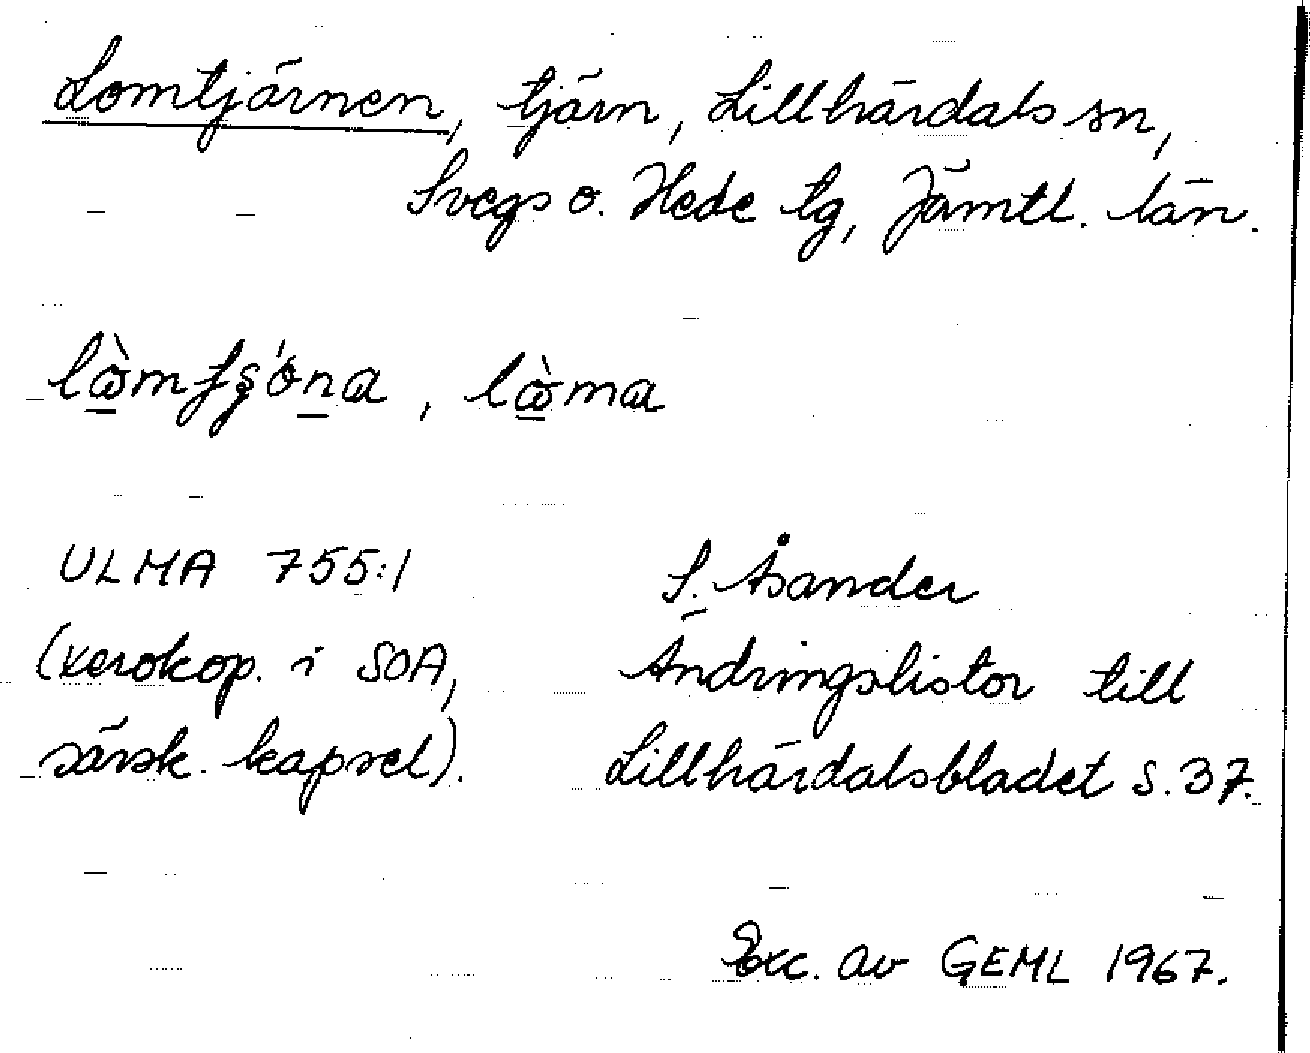 Lomtjärnen, tjärn, Lillhärdals sn,
Svegs o. Hede tg, Jämtl. län.
ULMA 755:1
(xerokop. i SOA,
särsk. kapsel).
S. Åsander
Ändringslistor till
Lillhärdalsbladet s. 37.
Exc. av GEML 1967.